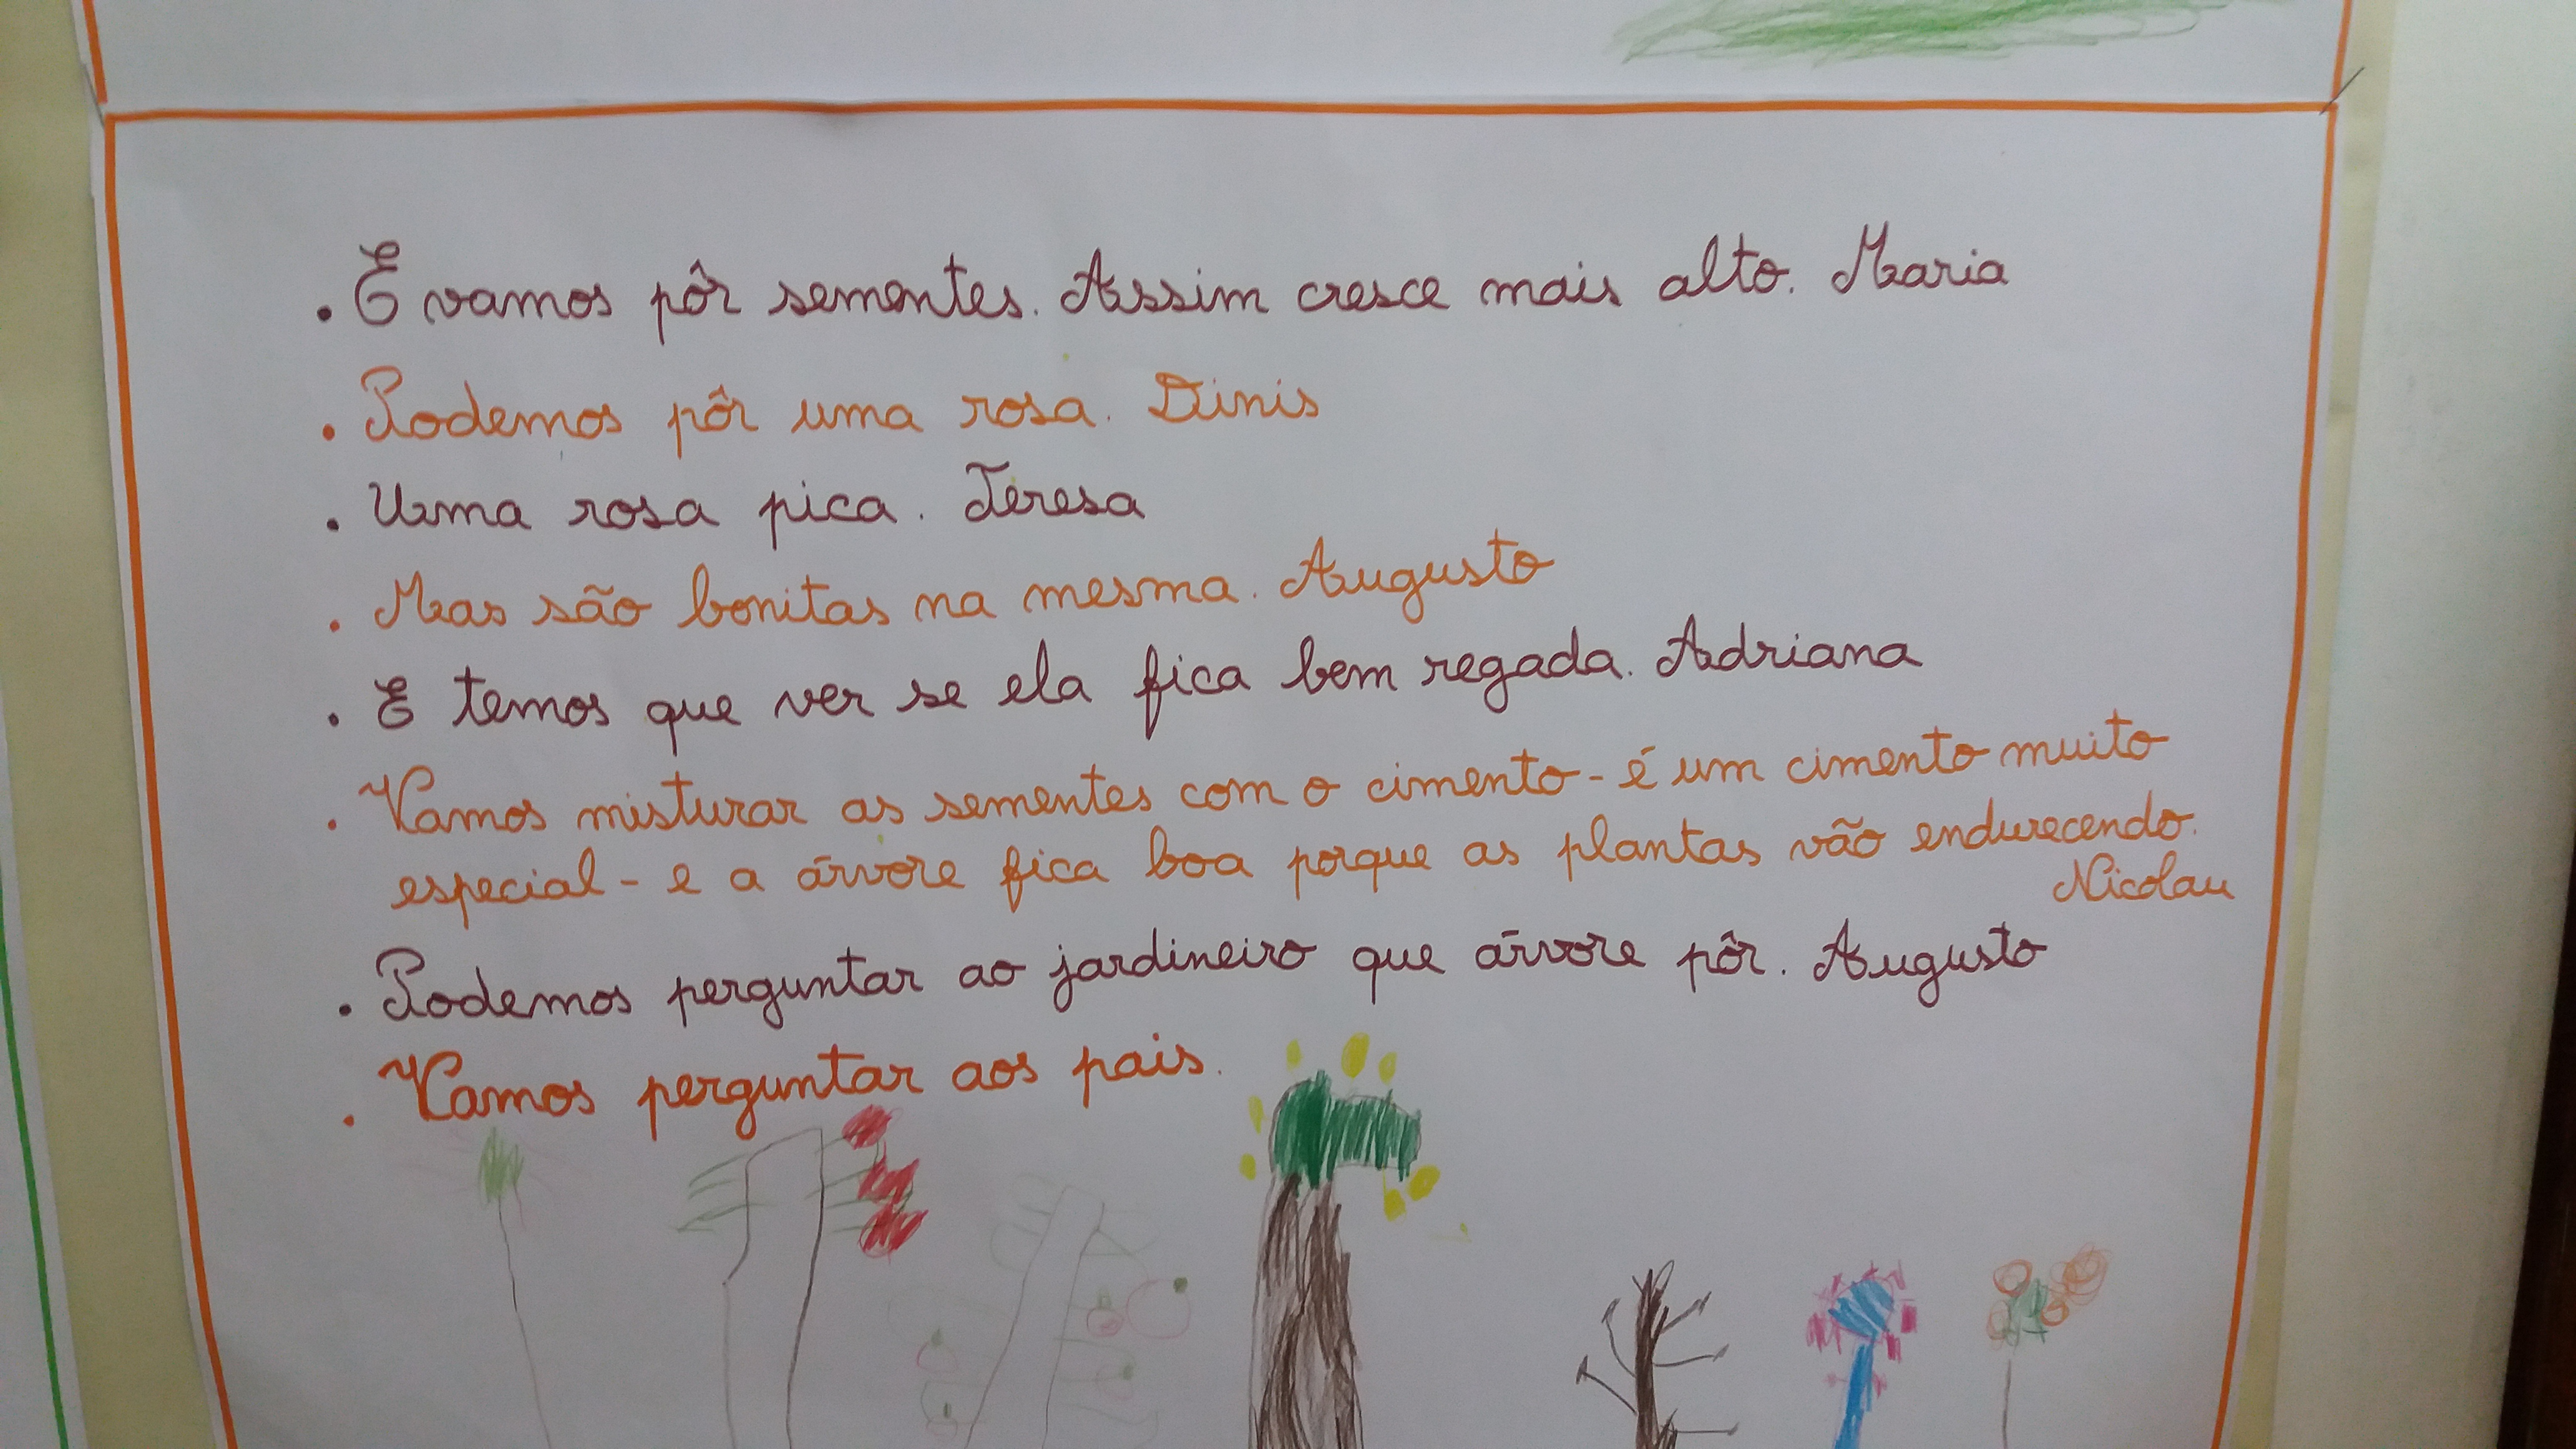 . E vamos pôr sementes. Assim cresce mais alto. Maria
. Podemos pôr uma rosa. Dinis
. Uma rosa pica. Teresa
. Mas são bonitas na mesma. Augusto
. E temos que ver se ela fica bem regada. Adriana
. Vamos misturar as sementes com o cimento - é um cimento muito
especial - e a árvore fica boa porque as plantas vão endurecendo.
Nicolau
. Podemos perguntar ao jardineiro que árvore pôr. Augusto
. Vamos perguntar aos pais.